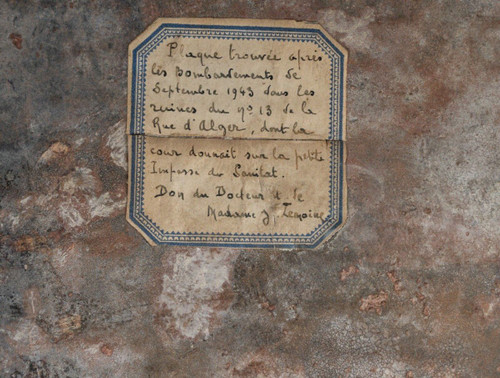 Plaque trouvée après
les bombardements de
Septembre 1943 dans les
ruines du nº 13 de la
Rue d'Alger, dont la
cour donnait sur la petite
Impasse du Sanitat.
Don du Docteur & de
Madame J. Lemoine